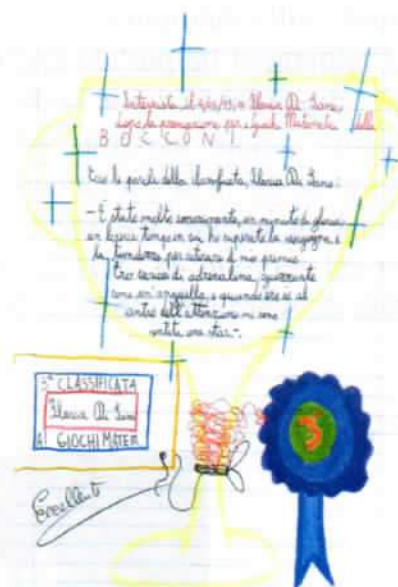 Intervista il a Ilaria Di Iano:
dopo la premiazione per i Giochi Matematici della
BOCCONI
Ecco le parole della classificata, Ilaria Di Iano:
- È stato molto emozionante, un minuto di gloria,
un breve tempo in cui ho superato la vergogna e
la timidezza per ritirare il mio premio.
Ero carica di adrenalina, guizzante
come un'anguilla, e quando ero al
centro dell'attenzione mi sono
sentita una star-.
3ª CLASSIFICATA
Ilaria Di Iano
AI GIOCHI MATEM
Eccellente
3